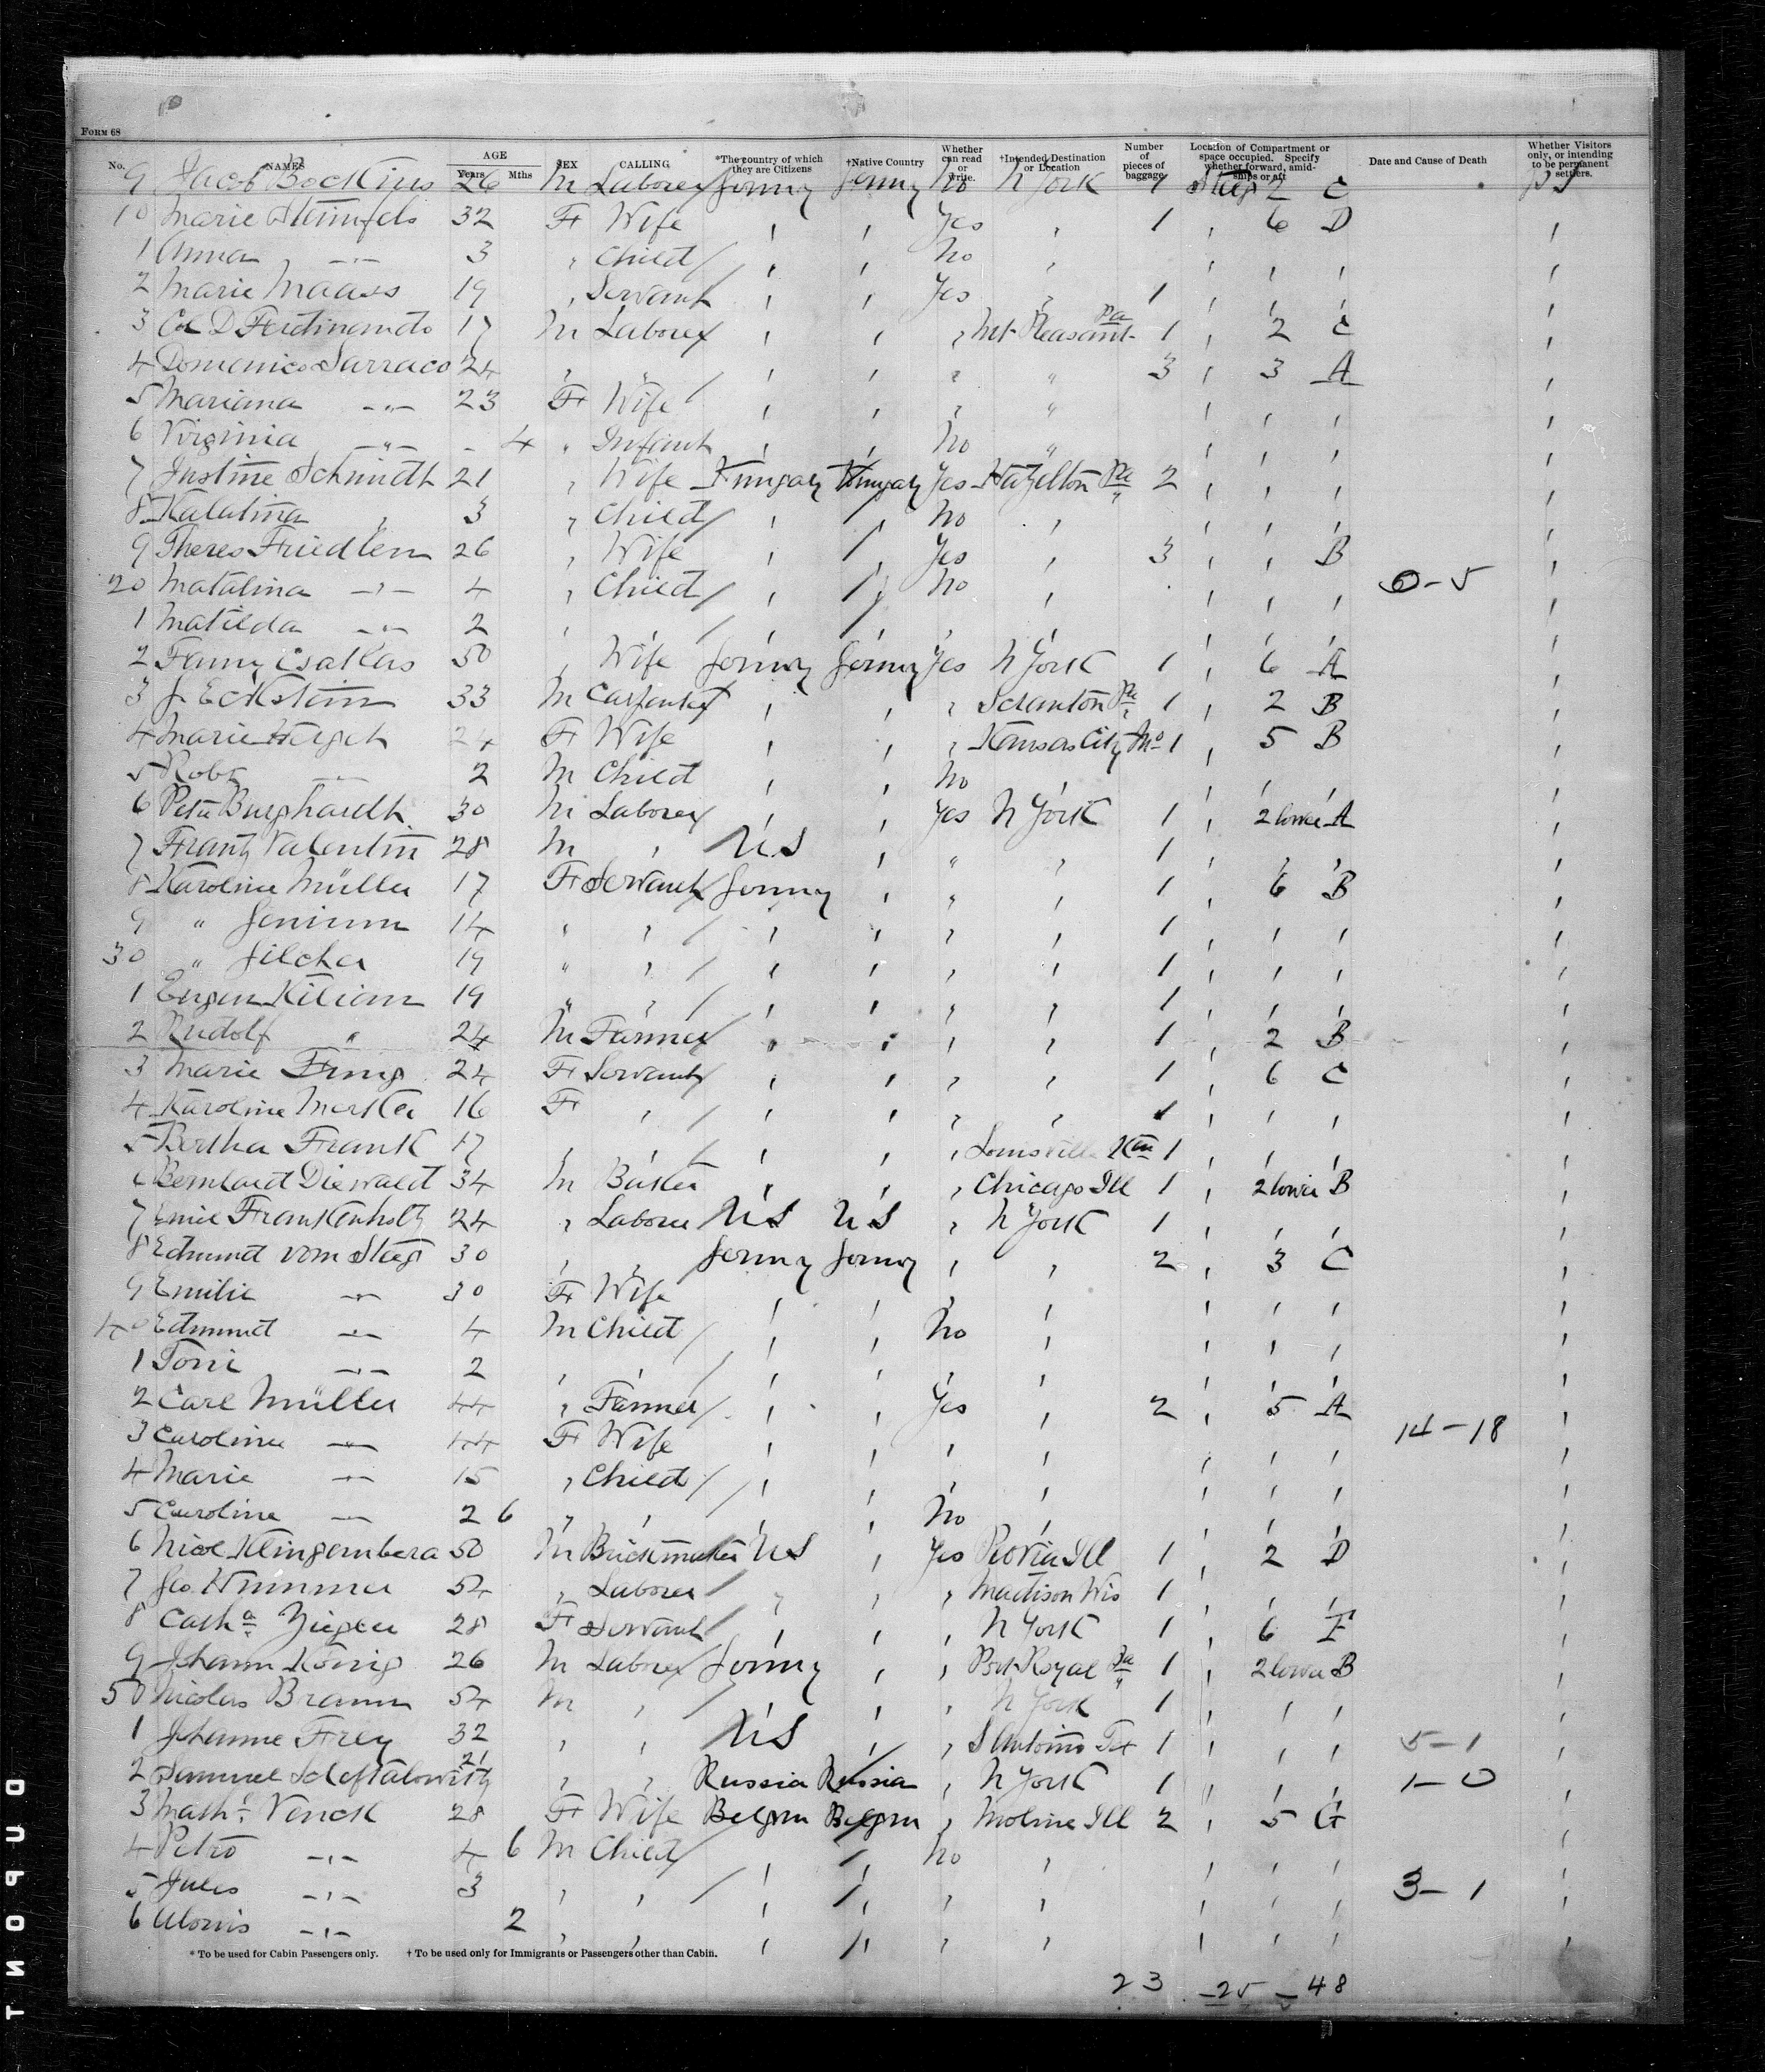 FORM 68
No. NAMES AGE Years Mths SEX CALLING *The country of which they are Citizens †Native Country Whether can read or write. †Intended Destination or Location Number of pieces of baggage Location of Compartment or space occupied. Specify whether forward, amidships or aft Date and Cause of Death Whether Visitors only, or intending to be permanent settlers.
9 Jacob 26 M Laborer Germy Germy No N York 1 Steeg 2 C
10 Marie 32 F Wife ' ' Yes ' 1 ' 6 D '
1 Anna -"- 3 ' Child ' ' No ' ' ' ' '
2 Marie Maass 19 ' Servant ' ' Yes ' 1 ' ' ' '
3 D Ferdinando 17 M Laborer ' ' ' Mt Pleasant Pa 1 ' 2 C '
4 Domenico Sarraco 24 ' " ' ' ' " 3 ' 3 A '
5 Mariana -"- 23 F Wife ' ' ' " ' ' ' '
6 Virginia -"- - 4 " Infant ' ' No " ' ' ' '
7 Justine Schmidth 21 ' Wife Hungary Hungary Yes Hazelton Pa 2 ' ' ' '
8 Katalina ' 3 ' Child ' ' No ' ' ' ' '
9 Theres Friedlem 26 ' Wife ' ' Yes ' 3 ' ' B '
20 Matalina -"- 4 ' Child ' ' No ' ' ' ' 0-5 '
1 Matilda -"- 2 ' ' ' ' ' ' ' ' ' '
2 Fanny 50 ' Wife Germy Germy Yes N York 1 ' 6 A '
3 J. Eckstein 33 M Carpenter ' ' ' Scranton Pa 1 ' 2 B '
4 Marie 24 F Wife ' ' ' Kansas City Mo 1 ' 5 B '
5 Robt -"- 2 M Child ' ' No ' ' ' ' '
6 Peter Burghardt 30 M Laborer ' ' Yes N York 1 ' 2 lower A '
7 Frantz Valentin 28 M ' U.S ' " ' 1 ' ' ' '
8 Karoline Müller 17 F Servant Germy ' " ' 1 ' 6 B '
9 " 14 ' ' ' ' ' ' 1 ' ' ' '
30 " Filcher 19 " ' ' ' ' ' 1 ' ' ' '
1 Eugen Kilian 19 " ' ' ' " ' 1 ' ' ' '
2 Rudolf " 24 M Farmer ' ' ' ' 1 ' 2 B '
3 Marie 24 F Servant ' ' ' ' 1 ' 6 C '
4 Karoline Merkle 16 F ' ' ' ' ' 1 ' ' ' '
5 Bertha Frank 17 ' ' ' ' ' Louisville Ken 1 ' ' ' '
6 Bernhard Diewald 34 M ' ' ' Chicago Ill 1 ' 2 lower B '
7 Emil Frankenholtz 24 ' Laborer U.S U.S ' N York 1 ' ' ' '
8 Edmund vom Steeg 30 ' ' Germy Germy ' ' 2 ' 3 C '
9 Emilie -"- 30 F Wife ' ' ' ' ' ' ' '
40 Edmund -"- 4 M Child ' ' No ' ' ' ' '
1 Toni -"- 2 ' ' ' ' ' ' ' ' ' '
2 Carl Müller 44 ' Farmer ' ' Yes ' 2 ' 5 A '
3 Caroline -"- 44 F Wife ' ' ' ' ' ' ' 14-18 '
4 Marie -"- 15 ' Child ' ' ' ' ' ' ' '
5 Caroline -"- 2 6 ' ' ' ' No ' ' ' ' '
6 Nicol Klingembera 50 M Brickmaker U.S ' Yes Peoria Ill 1 ' 2 D '
7 Geo. 54 ' Laborer ' ' ' Madison Wis 1 ' ' ' '
8 Catha 28 F Servant ' ' ' N York 1 ' 6 F '
9 Johann König 26 M Laborer Germy ' ' Port Royal Pa 1 ' 2 lower B '
50 Nicolas Bramm 54 M ' ' ' ' N York 1 ' ' ' '
1 Johanne Frey 32 ' ' U.S ' ' S Antonio Tex 1 ' ' ' 5-1 '
2 Samuel Scheftalowitz 21 ' ' Russia Russia ' N York 1 ' ' ' 1-0 '
3 Mathe Venck 28 F Wife Belgm Belgm ' Moline Ill 2 ' 5 G '
4 Petro -"- 4 6 M Child ' ' No ' ' ' ' '
5 Jules -"- 3 ' ' ' ' ' ' ' ' ' 3-1 '
6 -"- 2 ' ' ' ' ' ' ' ' ' '
* To be used for Cabin Passengers only. † To be used only for Immigrants or Passengers other than Cabin.
23 - 25 - 48